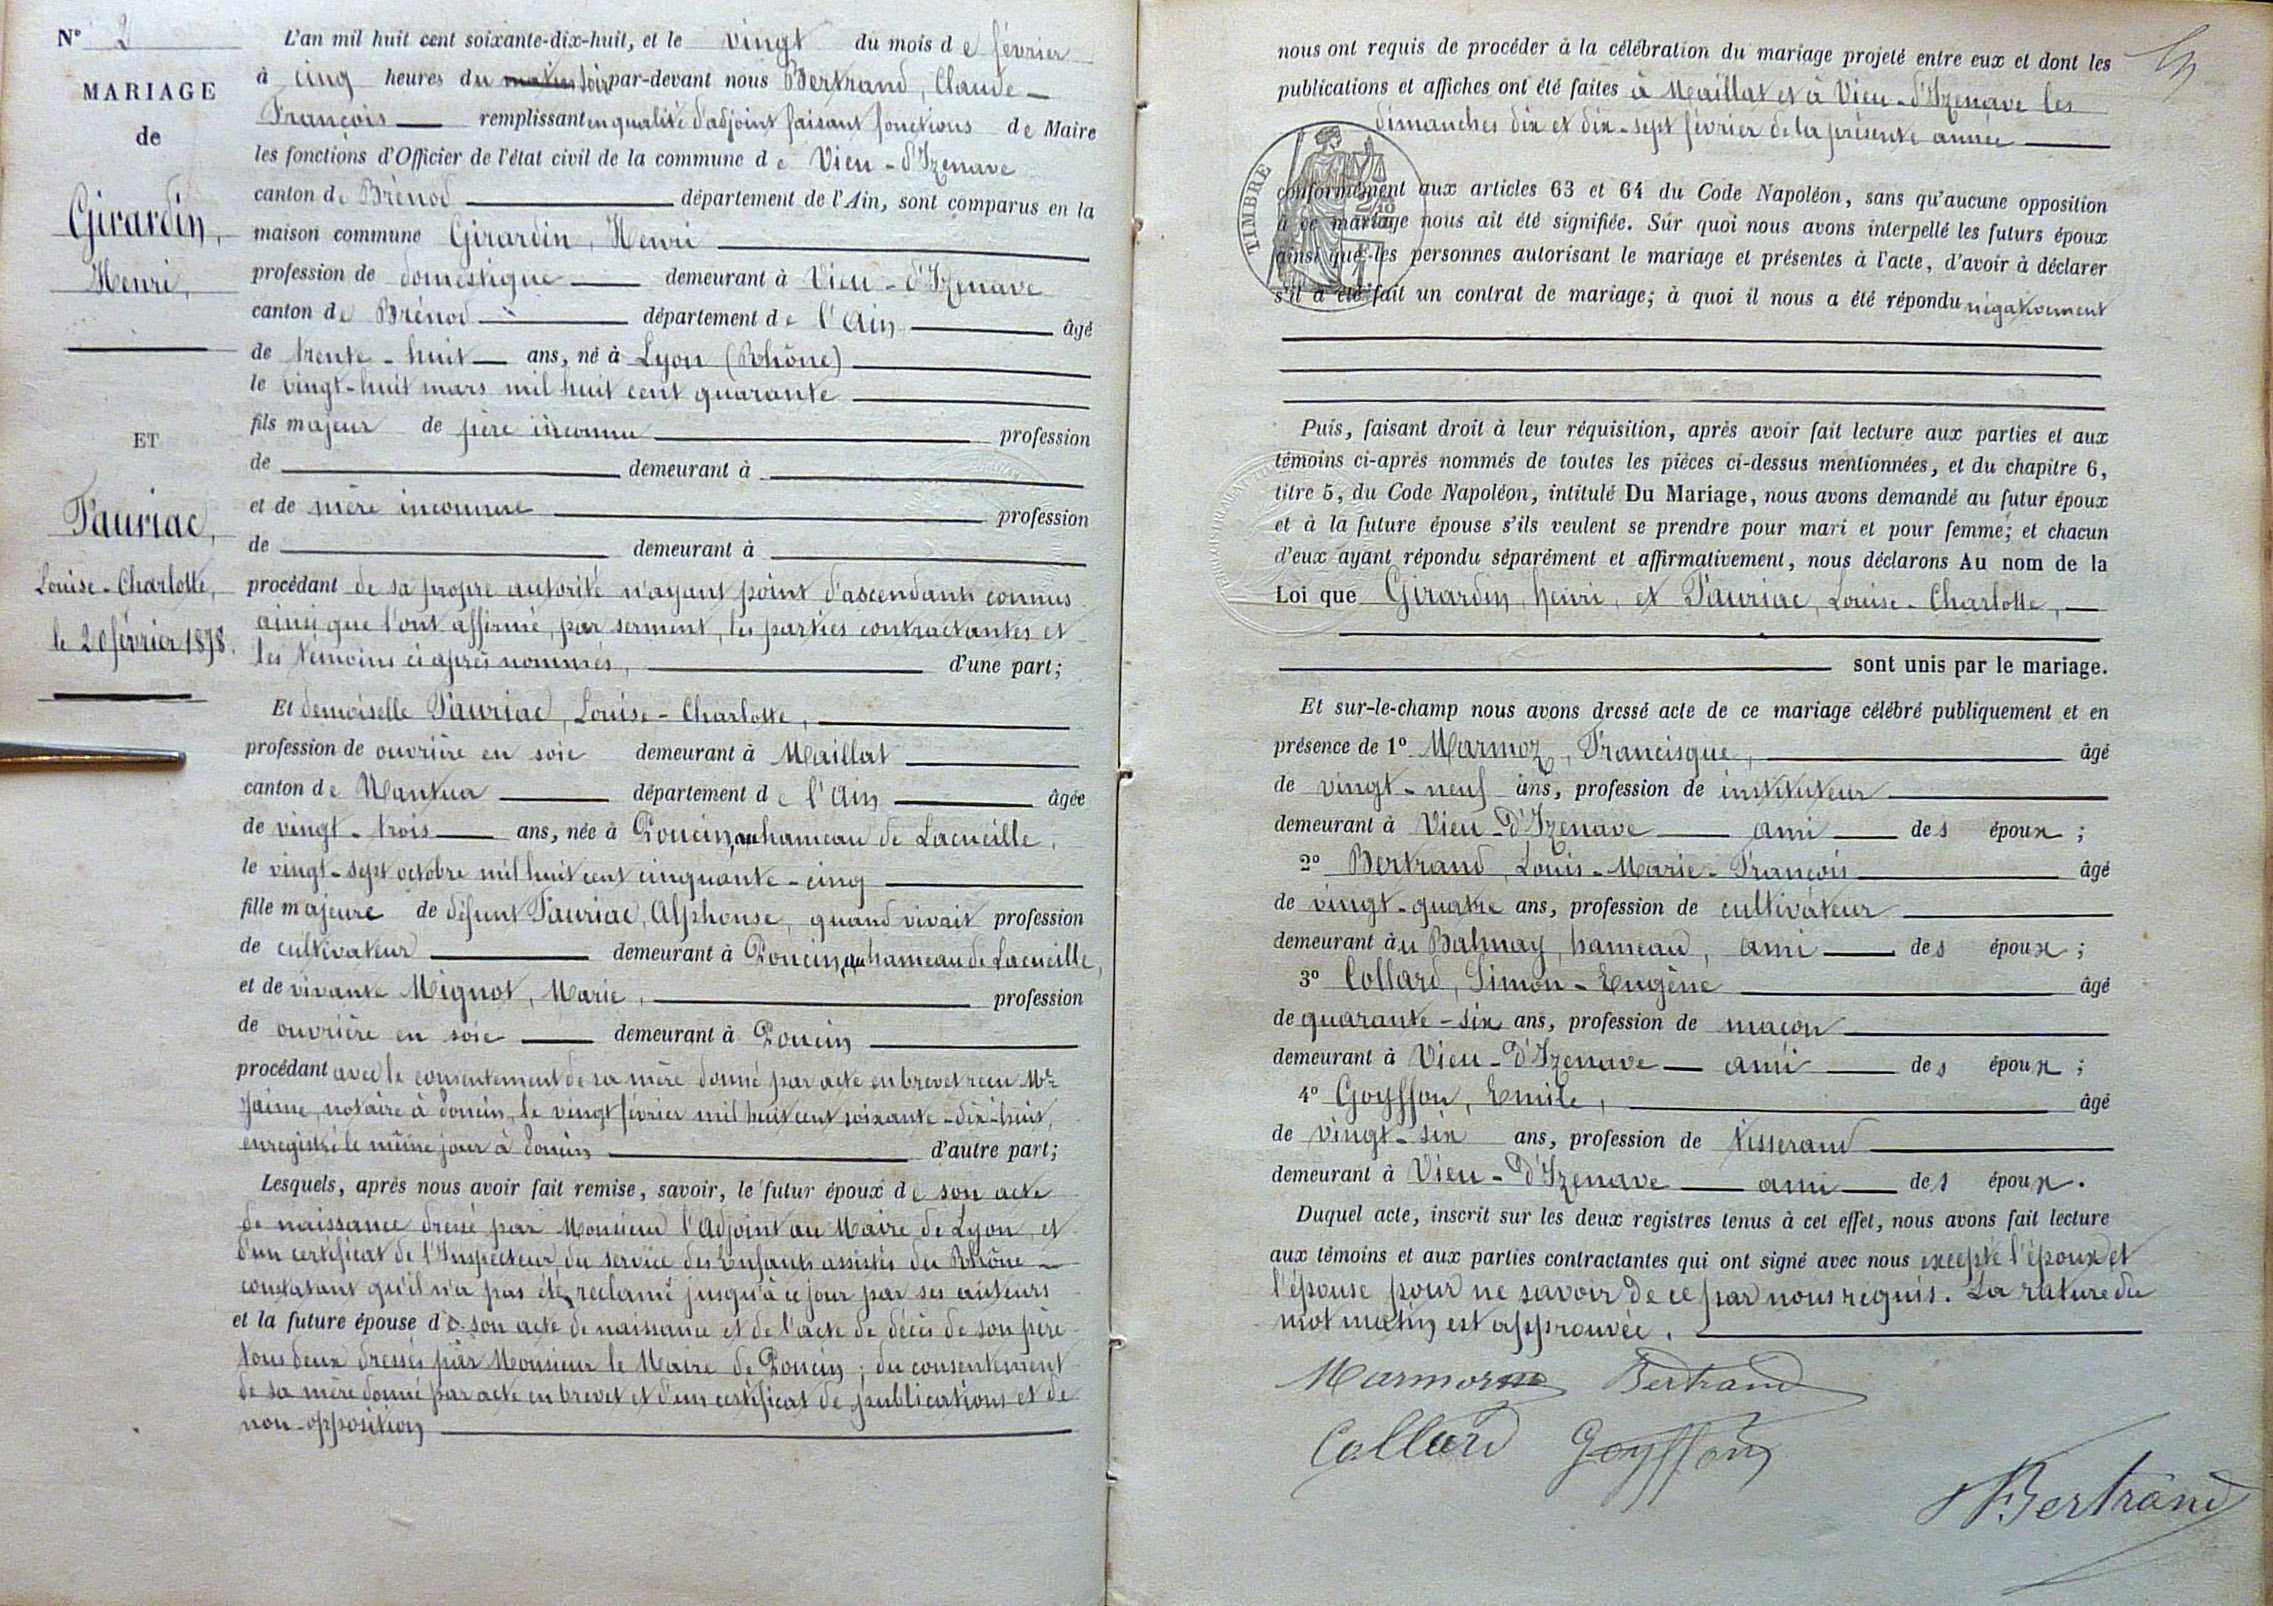 N° 2
MARIAGE
de
Girardin,
Henri,
ET
Tauriac,
Louise-Charlotte,
le 20 février 1878.
L'an mil huit cent soixante-dix-huit, et le vingt du mois de février
à cinq heures du matin soir par-devant nous Bertrand, Claude-
François remplissant en qualité d'adjoint faisant fonctions de Maire
les fonctions d'Officier de l'état civil de la commune de Vieu-d'Izenave
canton de Brénod département de l'Ain, sont comparus en la
maison commune Girardin, Henri
profession de domestique demeurant à Vieu-d'Izenave
canton de Brénod département de l'Ain âgé
de trente-huit ans, né à Lyon (Rhône)
le vingt-huit mars mil huit cent quarante
fils majeur de père inconnu profession
de demeurant à
et de mère inconnue profession
de demeurant à
procédant de sa propre autorité n'ayant point d'ascendants connus
ainsi que l'ont affirmé, par serment, les parties contractantes et
les témoins ci après nommés, d'une part;
Et demoiselle Tauriac, Louise-Charlotte,
profession de ouvrière en soie demeurant à Maillat
canton de Nantua département de l'Ain âgée
de vingt-trois ans, née à Poncin, au hameau de Lacueille,
le vingt-sept octobre mil huit cent cinquante-cinq
fille majeure de défunt Tauriac, Alphonse, quand vivait profession
de cultivateur demeurant à Poncin, au hameau de Lacueille,
et de vivante Mignot, Marie, profession
de ouvrière en soie demeurant à Poncin
procédant avec le consentement de sa mère donné par acte en brevet reçu Mr
Jaime, notaire à Poncin, le vingt février mil huit cent soixante-dix-huit,
enregistré le même jour à Poncin d'autre part;
Lesquels, après nous avoir fait remise, savoir, le futur époux de son acte
de naissance dressé par Monsieur l'Adjoint au Maire de Lyon, et
d'un certificat de l'Inspecteur du service des Enfants assistés du Rhône
constatant qu'il n'a pas été réclamé jusqu'à ce jour par ses auteurs
et la future épouse de son acte de naissance et de l'acte de décès de son père
tous deux dressés par Monsieur le Maire de Poncin; du consentement
de sa mère donné par acte en brevet et d'un certificat de publications et de
non-opposition
nous ont requis de procéder à la célébration du mariage projeté entre eux et dont les
publications et affiches ont été faites à Maillat et à Vieu-d'Izenave les
dimanches dix et dix-sept février de la présente année
TIMBRE
conformément aux articles 63 et 64 du Code Napoléon, sans qu'aucune opposition
à ce mariage nous ait été signifiée. Sur quoi nous avons interpellé les futurs époux
ainsi que les personnes autorisant le mariage et présentes à l'acte, d'avoir à déclarer
s'il a été fait un contrat de mariage; à quoi il nous a été répondu négativement
Puis, faisant droit à leur réquisition, après avoir fait lecture aux parties et aux
témoins ci-après nommés de toutes les pièces ci-dessus mentionnées, et du chapitre 6,
titre 5, du Code Napoléon, intitulé Du Mariage, nous avons demandé au futur époux
et à la future épouse s'ils veulent se prendre pour mari et pour femme; et chacun
d'eux ayant répondu séparément et affirmativement, nous déclarons Au nom de la
Loi que Girardin, henri, et Tauriac, Louise-Charlotte,
sont unis par le mariage.
Et sur-le-champ nous avons dressé acte de ce mariage célébré publiquement et en
présence de 1° Marmoz, Francisque, âgé
de vingt-neuf ans, profession de instituteur
demeurant à Vieu-d'Izenave ami des époux;
2° Bertrand, Louis-Marie-François âgé
de vingt-quatre ans, profession de cultivateur
demeurant au Balmay, hameau, ami des époux;
3° Collard, Simon-Eugène âgé
de quarante-six ans, profession de maçon
demeurant à Vieu-d'Izenave ami des époux;
4° Goyffon, Emile, âgé
de vingt-six ans, profession de tisserand
demeurant à Vieu-d'Izenave ami des époux.
Duquel acte, inscrit sur les deux registres tenus à cet effet, nous avons fait lecture
aux témoins et aux parties contractantes qui ont signé avec nous excepté l'époux et
l'épouse pour ne savoir de ce par nous requis. La rature du
mot matin est approuvée.
Marmoz Bertrand
Collard Goyffon
Bertrand